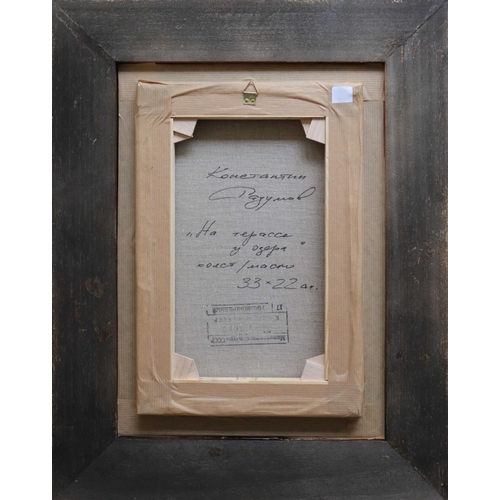 Константин
Разумов
„На терассе
у озера"
холст/масло
33×22 см.